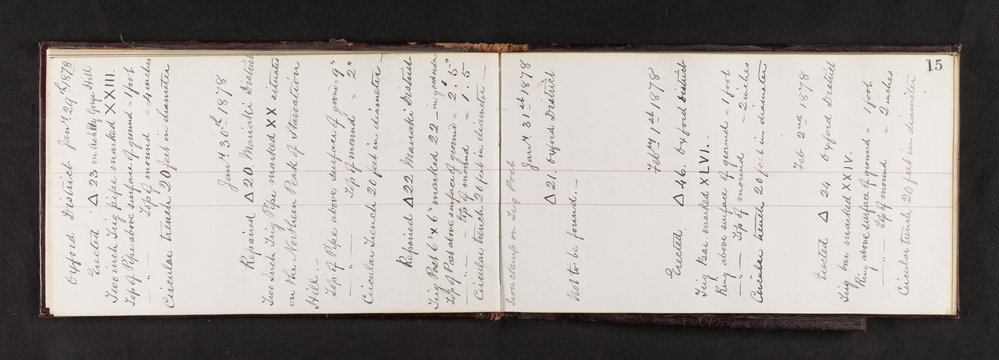 Oxford District Jany 29th 1878
Erected Δ 23 on Gorge Hill
Two inch Trig pipe marked XXIII.
Top of Pipe above surface of ground = 1 foot
— " — Top of mound = 4 inches
Circular trench 20 feet in diameter
Jany 30th 1878
Repaired Δ 20 Mairaki District
Two Inch Trig Pipe marked XX situated
on the Northern Peak of Starvation
Hill. —
Top of Pipe above surface of ground = 9"
— " — Top of mound = 2"
Circular Trench 20 feet in diameter —
Repaired Δ 22 Mairaki District
Trig Post 6" x 6" marked 22 — in good order
Top of Post above surface of ground = 2' 5"
— " — Top of mound = 1. 5
Circular trench 20 feet in diameter —
15
Iron clasps on Trig Post
Jany 31st 1878
Δ 21. Oxford District
Not to be found. —
Feby 1st 1878
Erected Δ 46. Oxford District
Trig Bar marked XLVI.
Ring above surface of ground = 1 foot
— " — Top of mound = 2 inches
Circular trench 20 feet in diameter
Feb 2nd 1878
Erected Δ 24 Oxford District
Trig bar marked XXIV.
Ring above surface of ground = 1 foot
— " — Top of mound = 2 inches
Circular trench 20 feet in diameter